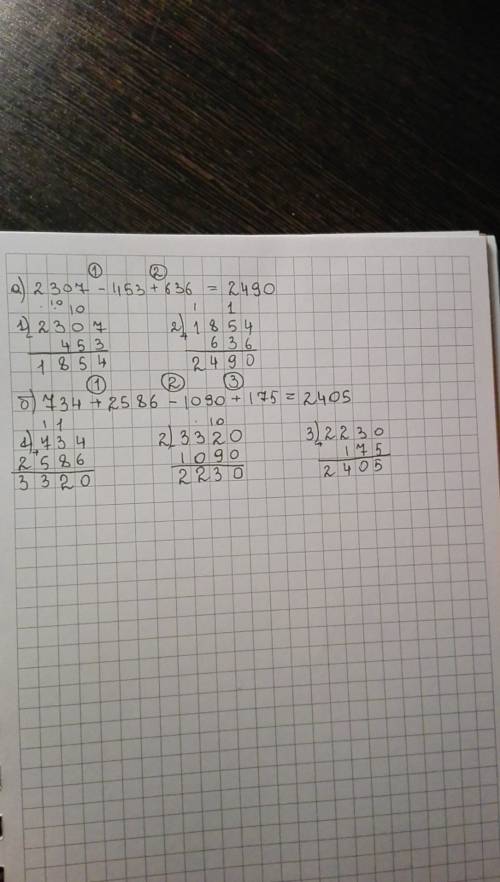 ① ②
а) 2307 - 453 + 636 = 2490
. 10 10 1 1
1) 2307 2) 1854
- 453 + 636
1854 2490
① ② ③
б) 734 + 2586 - 1090 + 175 = 2405
1 1 . 10
1) 734 2) 3320 3) 2230
+ 2586 - 1090 + 175
3320 2230 2405